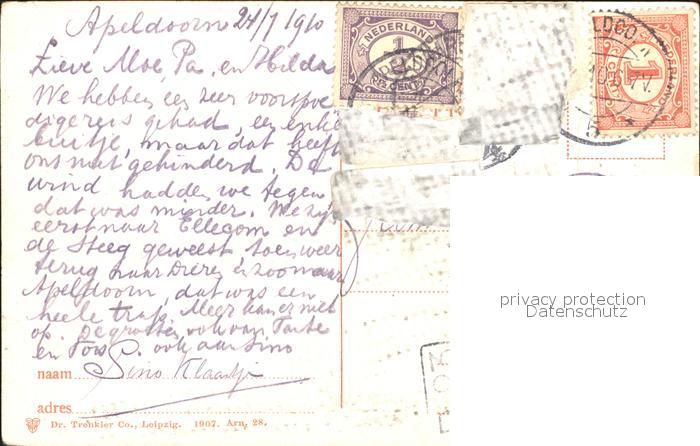 Apeldoorn 24/7 1910
Lieve Moe Pa, en Hilda
We hebben een zeer voorspoe
dige reis gehad, een enkel
buitje, maar dat heeft
ons niet gehinderd. De
wind hadden we tegen
dat was minder. We zijn
eerst naar Ellecom en
de Steeg geweest, toen weer
terug naar Dieren en zoo naar
Apeldoorn, dat was een
heele trap. Meer kan er niet
op. De groeten ook van Tante
en ook aan Sino
naam Sino Klaasje
adres
Dr. Trenkler Co., Leipzig. 1907. Arn. 28.
NEDERLAND
1/2 CENT
NEDERLAND
1
CENT
privacy protection
Datenschutz